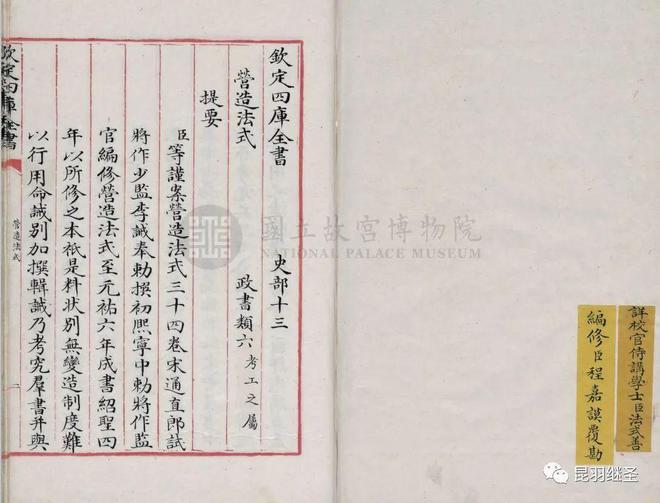 詳校官侍講學士臣法式善
編修臣程嘉謨覆勘
欽定四庫全書 史部十三
營造法式 政書類六考工之屬
提要
臣等謹案營造法式三十四卷宋通直郎試
將作少監李誡奉勅撰初熙寧中勅將作監
官編修營造法式至元祐六年成書紹聖四
年以所修之本祇是料狀別無變造制度難
以行用命誡別加撰輯誡乃考究羣書并與
欽定四庫全書
營造法式
國立故宮博物院
NATIONAL PALACE MUSEUM
昆羽继圣